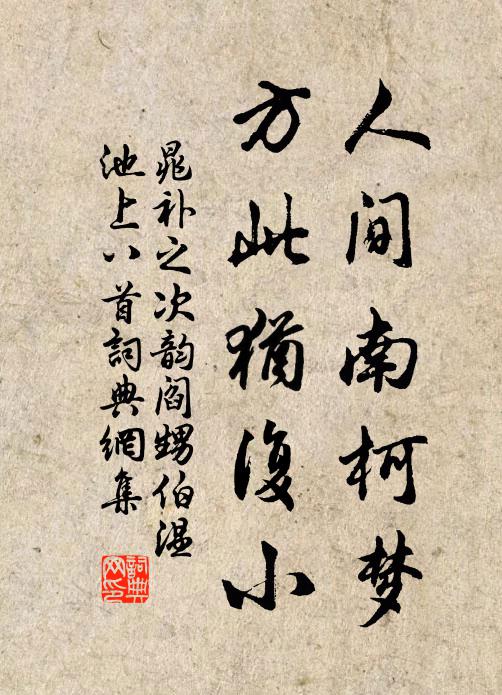 人间南柯梦
方此猶復小
晁补之次韵阎甥伯温
池上八首詞典網集
詞典网印